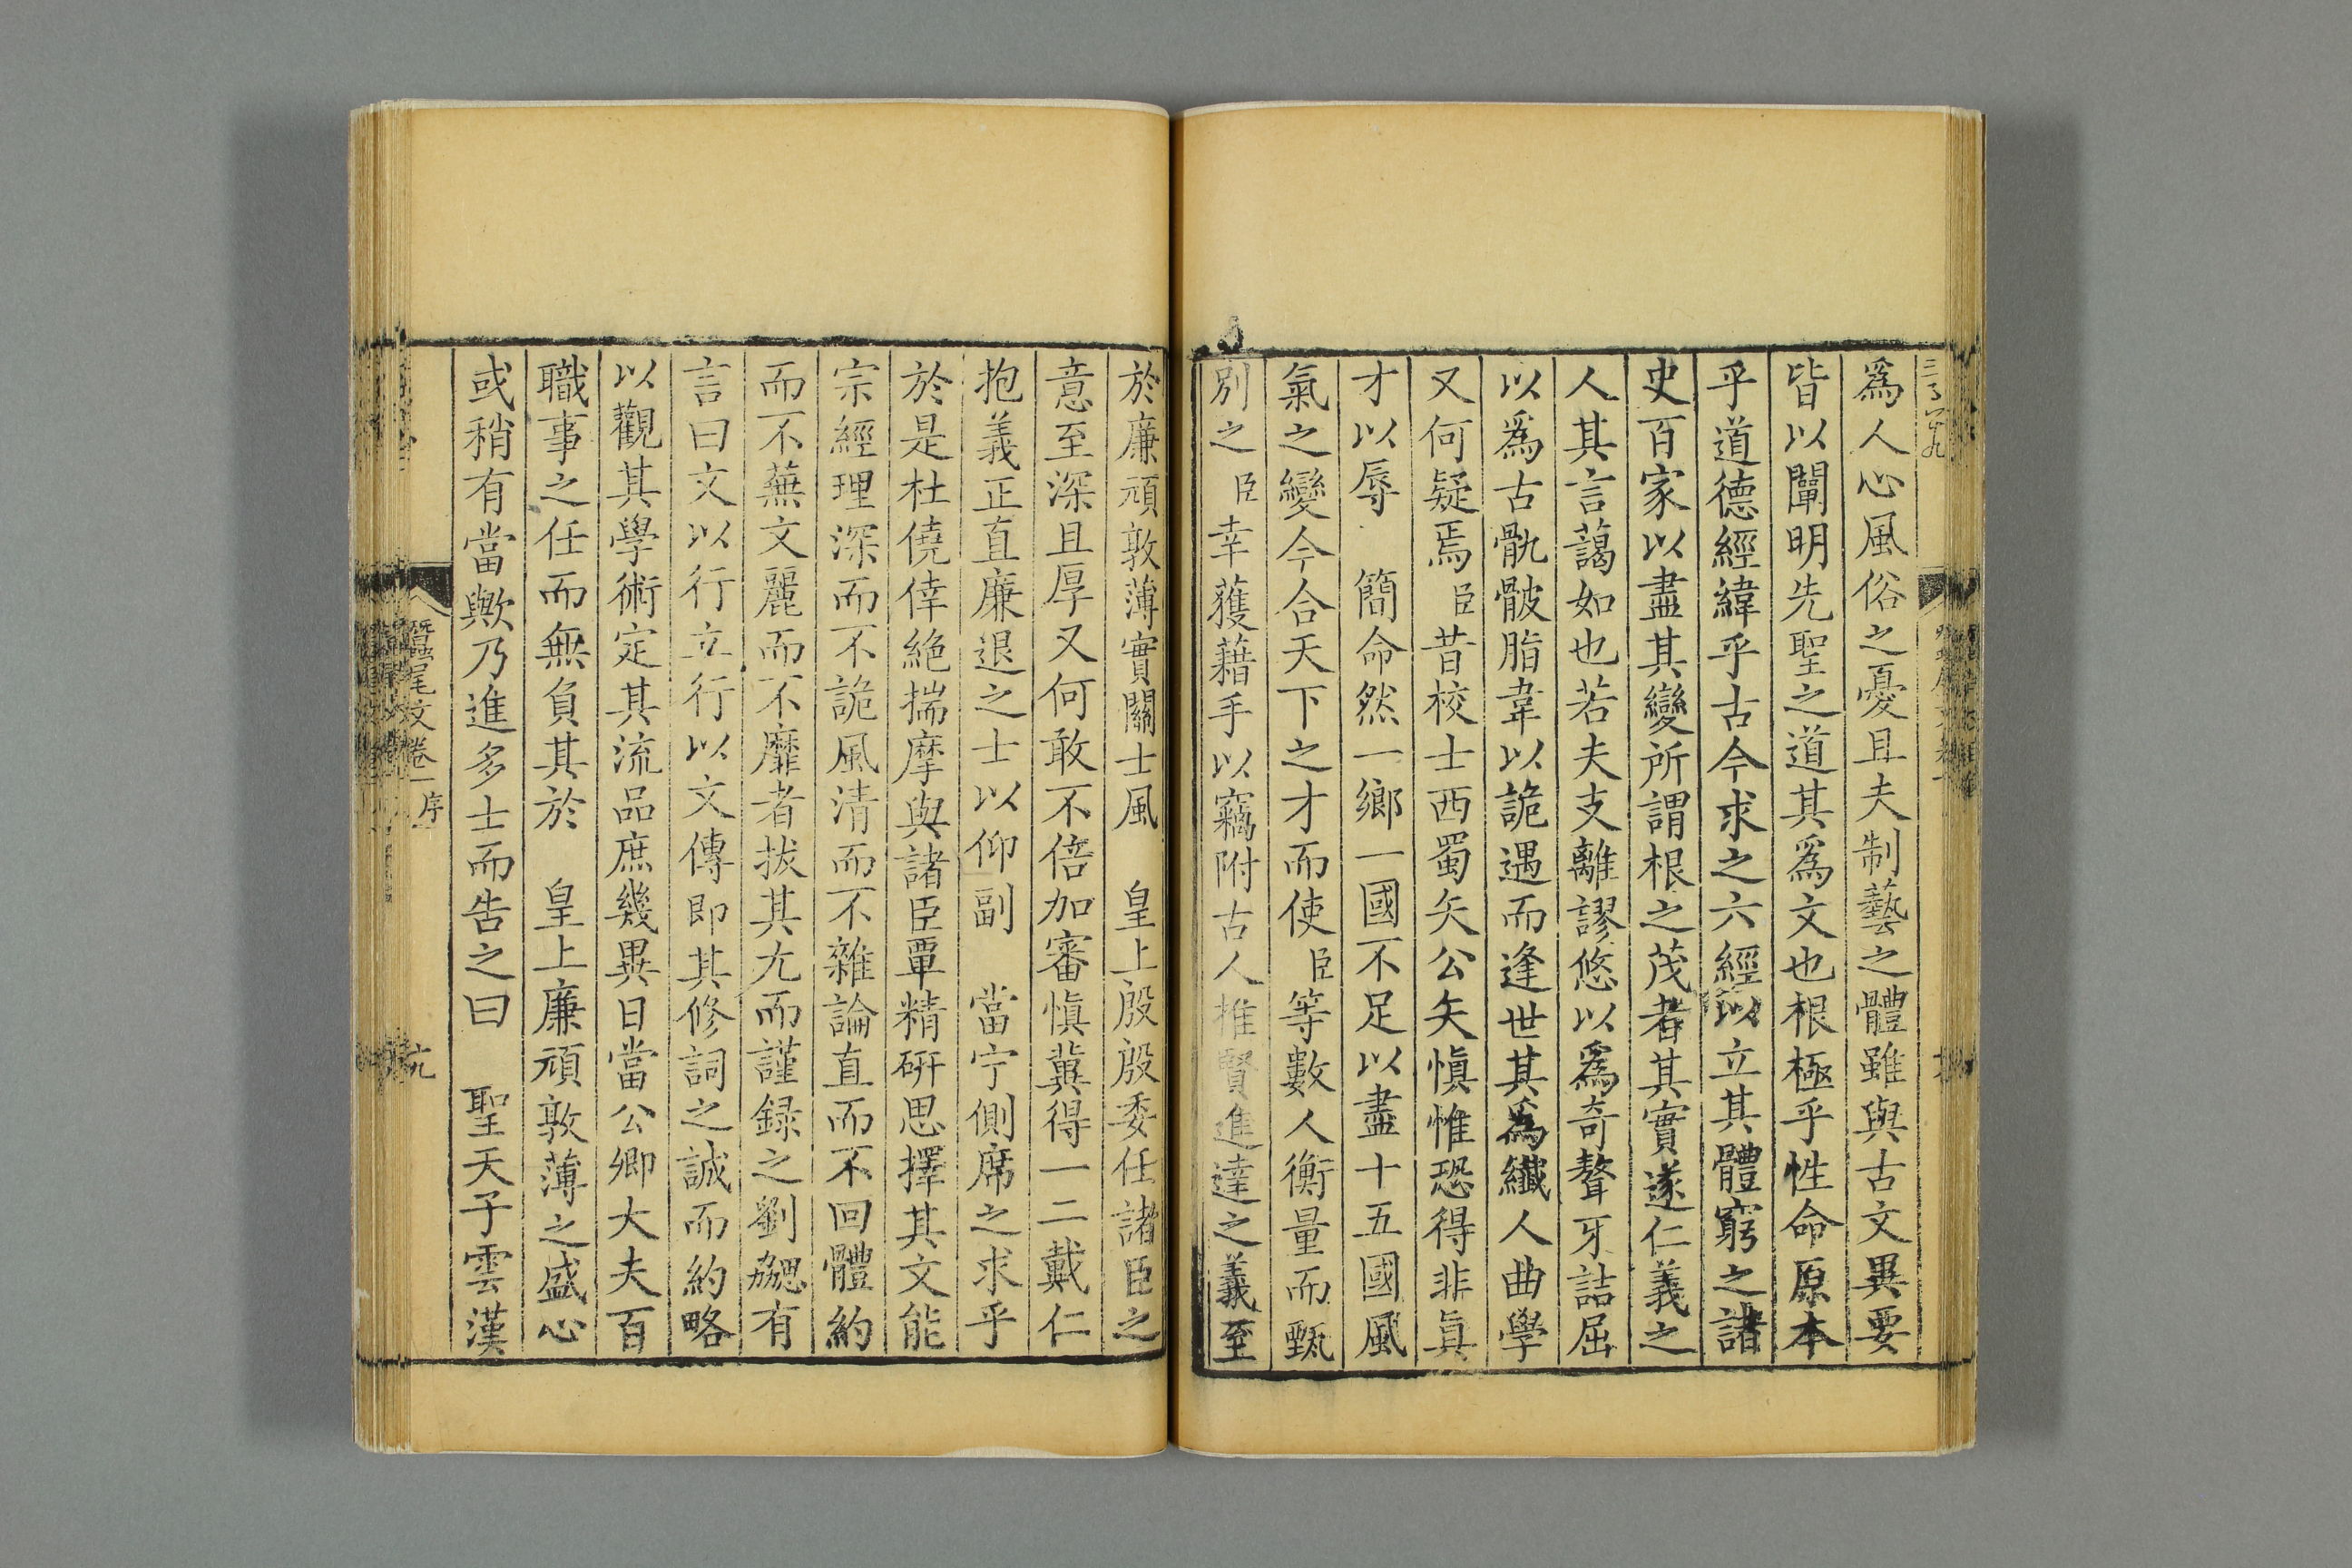 爲人心風俗之憂且夫制藝之體雖與古文異要
皆以闡明先聖之道其爲文也根極乎性命原本
乎道德經緯乎古今求之六經以立其體窮之諸
史百家以盡其變所謂根之茂者其實遂仁義之
人其言藹如也若夫支離謬悠以爲奇聱牙詰屈
以爲古骩骳脂韋以詭遇而逢世其爲纖人曲學
又何疑焉臣昔校士西蜀矢公矢愼惟恐得非眞
才以辱 簡命然一鄉一國不足以盡十五國風
氣之變今合天下之才而使臣等數人衡量而甄
別之臣幸獲藉手以竊附古人推賢進達之義至
於廉頑敦薄實關士風 皇上殷殷委任諸臣之
意至深且厚又何敢不倍加審愼冀得一二戴仁
抱義正直廉退之士以仰副 當宁側席之求乎
於是杜僥倖絶揣摩與諸臣覃精硏思擇其文能
宗經理深而不詭風清而不雜論直而不回體約
而不蕪文麗而不靡者拔其尤而謹録之劉勰有
言曰文以行立行以文傳即其修詞之誠而約略
以觀其學術定其流品庶幾異日當公卿大夫百
職事之任而無負其於 皇上廉頑敦薄之盛心
或稍有當歟乃進多士而告之曰 聖天子雲漢
蠶尾文卷一 序
十九